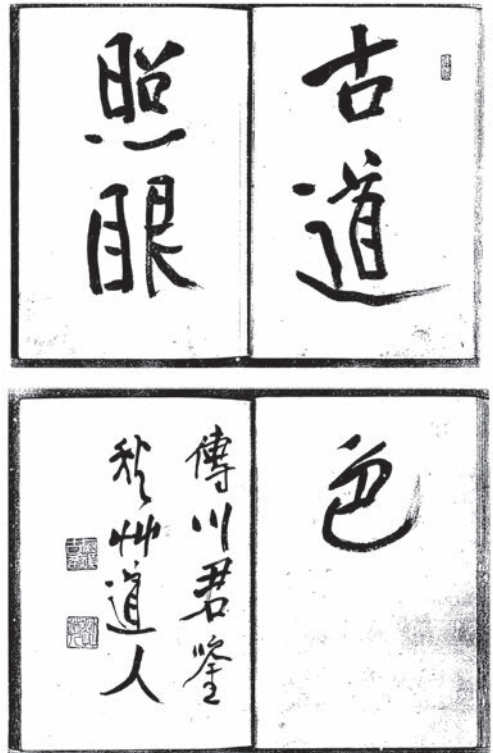 古道
照眼
色
傳川君鑒
秋艸道人